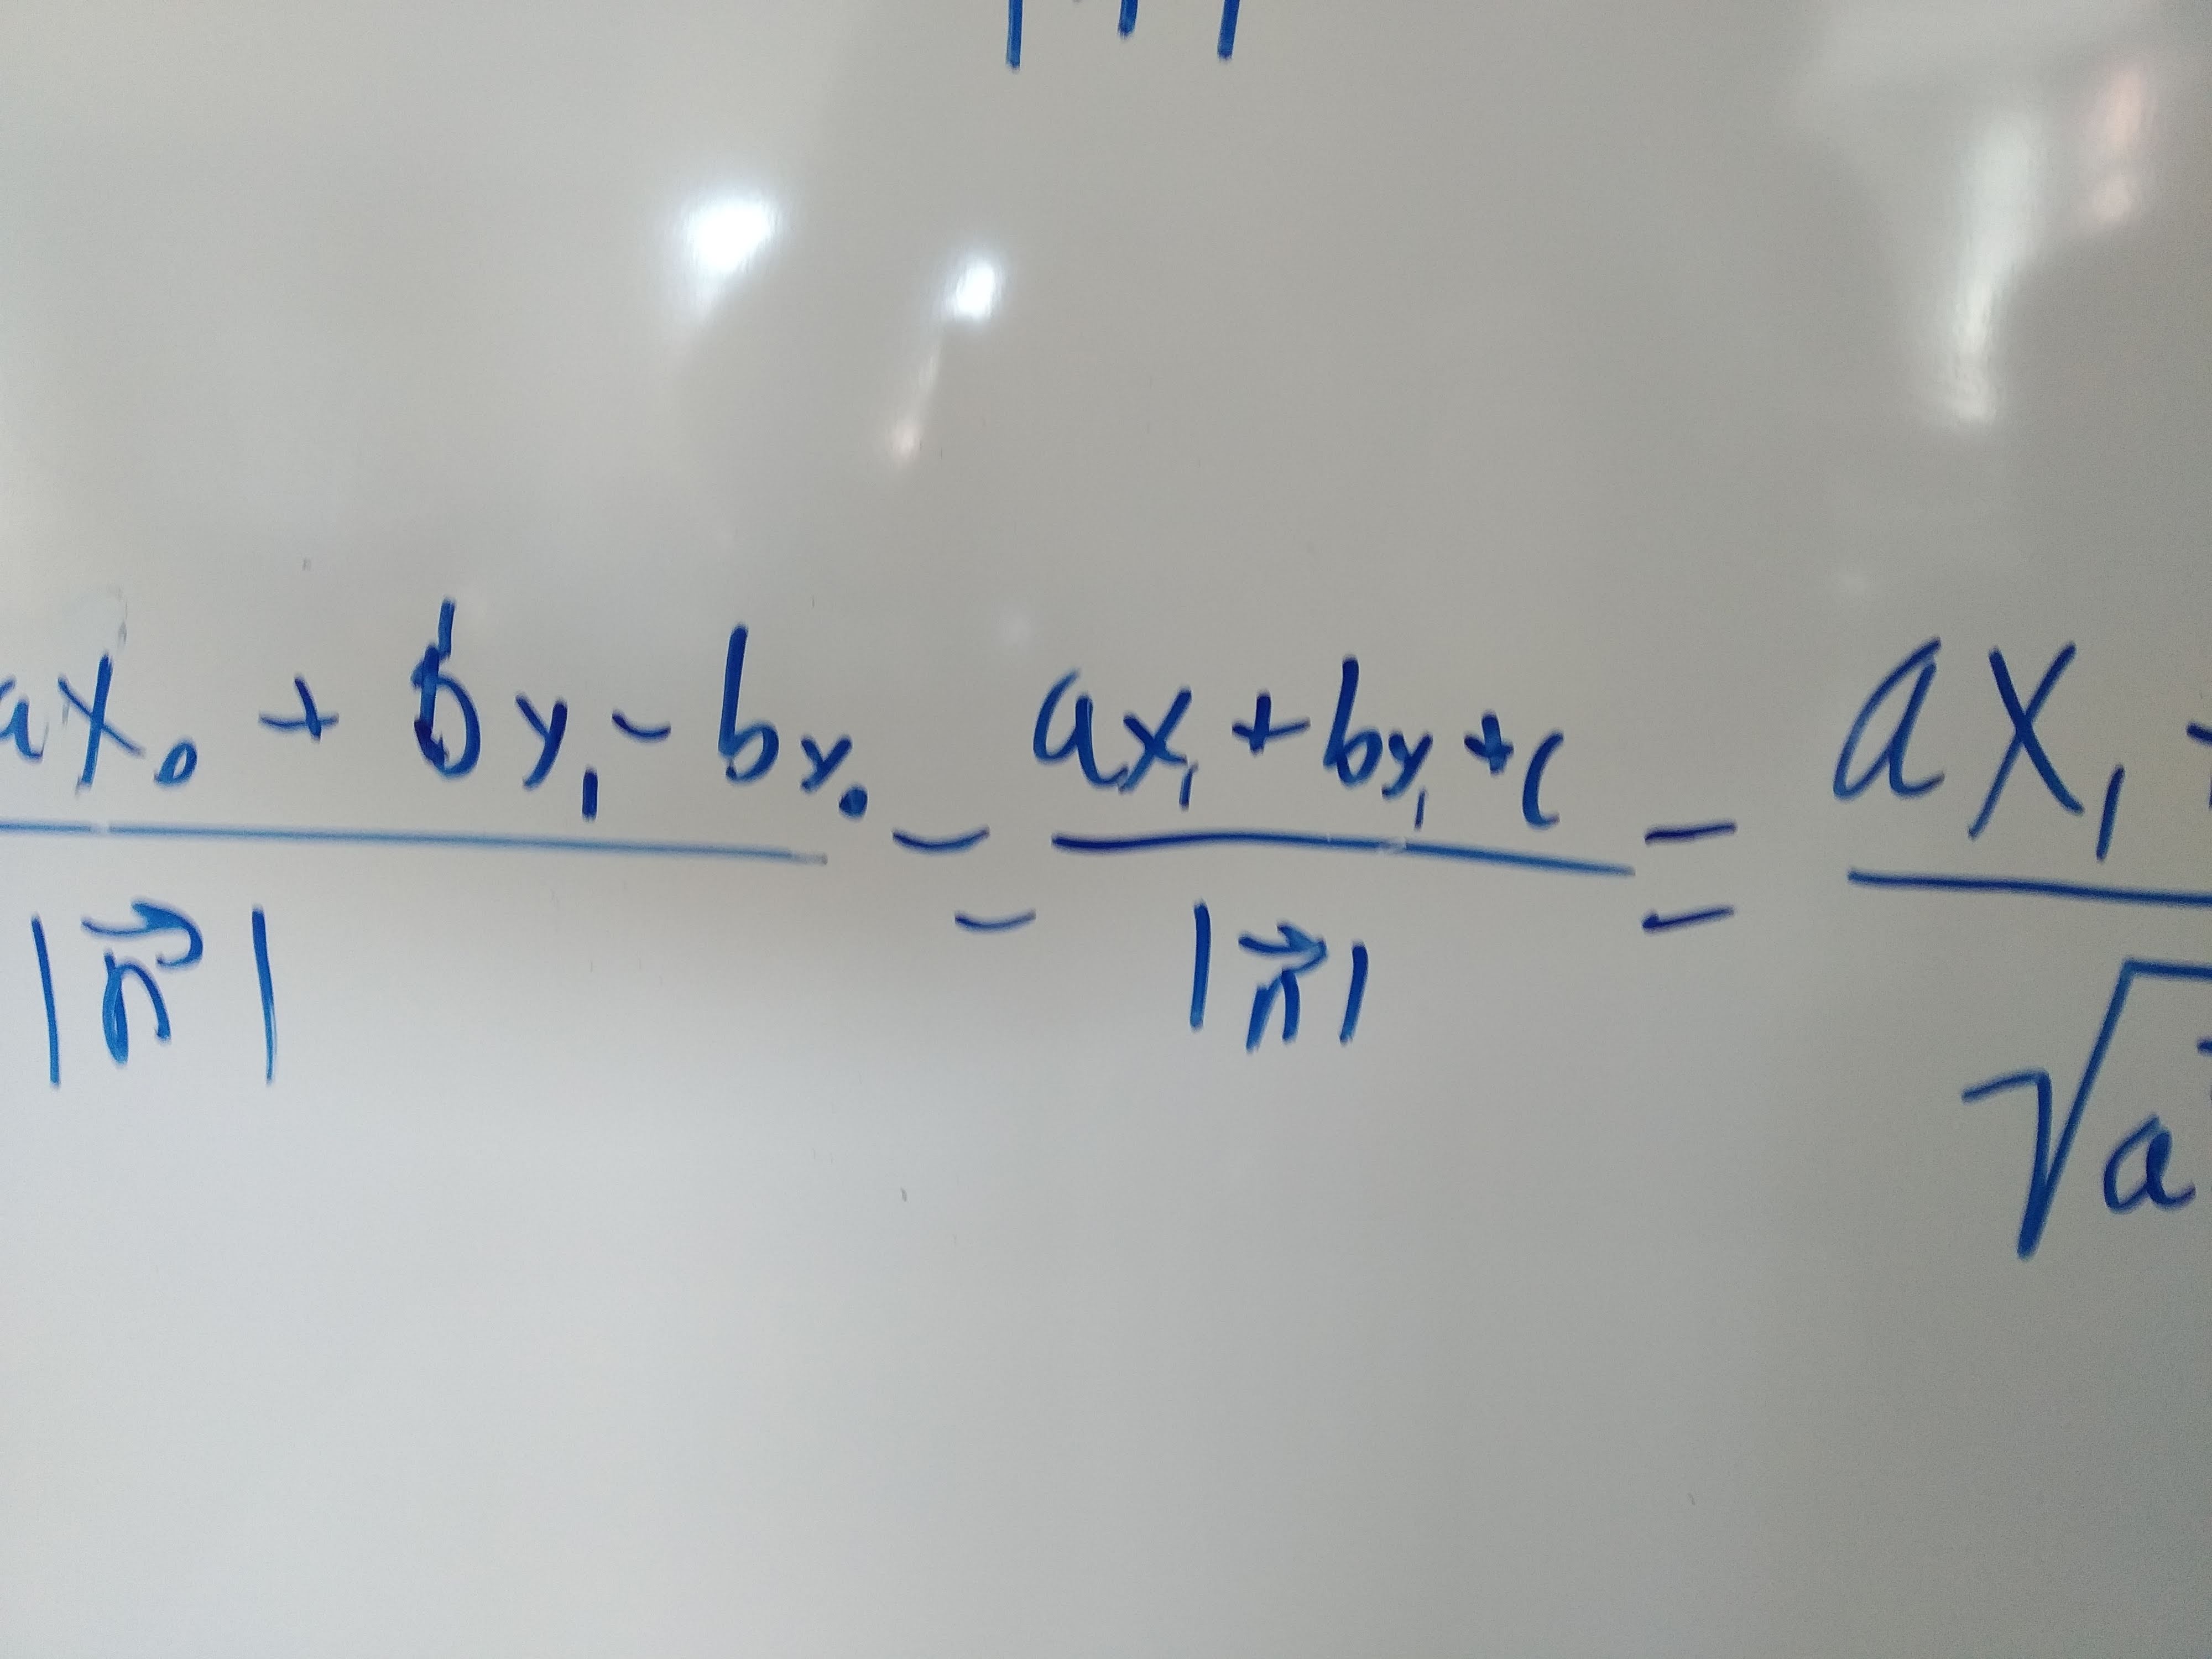 ax₀ + by₁ - by₀ = ax₁ + by₁ + c = ax₁ +
|n⃗| |n⃗| √a